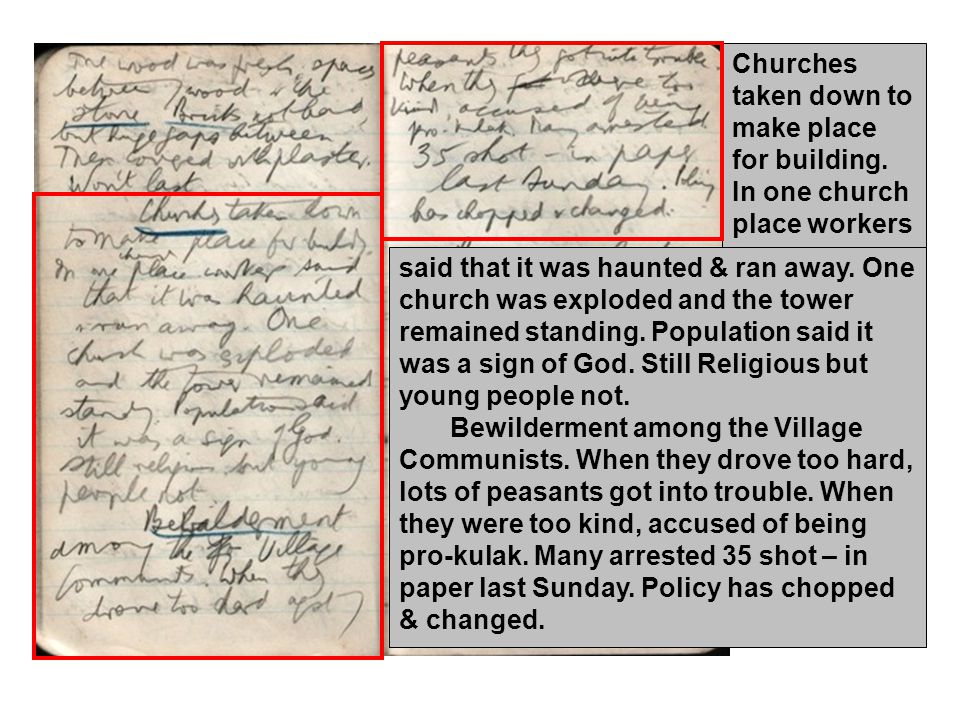 The wood was fresh, spaces
between wood & the
stone Bricks not hard,
but huge gaps between
Then with plaster.
Won't last
Churches taken down
to make place for building
church
In one place workers said
that it was haunted
& ran away. One
church was exploded
and the tower remained
standing. Population said
it was a sign of God.
Still religious but young
people not.
Bewilderment
among the Village
Communists. When they
drove too hard agst
peasants they got into trouble.
When they were too
kind, accused of being
pro-kulak. Many arrested.
35 shot – in paper
last Sunday. Policy
has chopped & changed.
Churches
taken down to
make place
for building.
In one church
place workers
said that it was haunted & ran away. One
church was exploded and the tower
remained standing. Population said it
was a sign of God. Still Religious but
young people not.
Bewilderment among the Village
Communists. When they drove too hard,
lots of peasants got into trouble. When
they were too kind, accused of being
pro-kulak. Many arrested 35 shot – in
paper last Sunday. Policy has chopped
& changed.